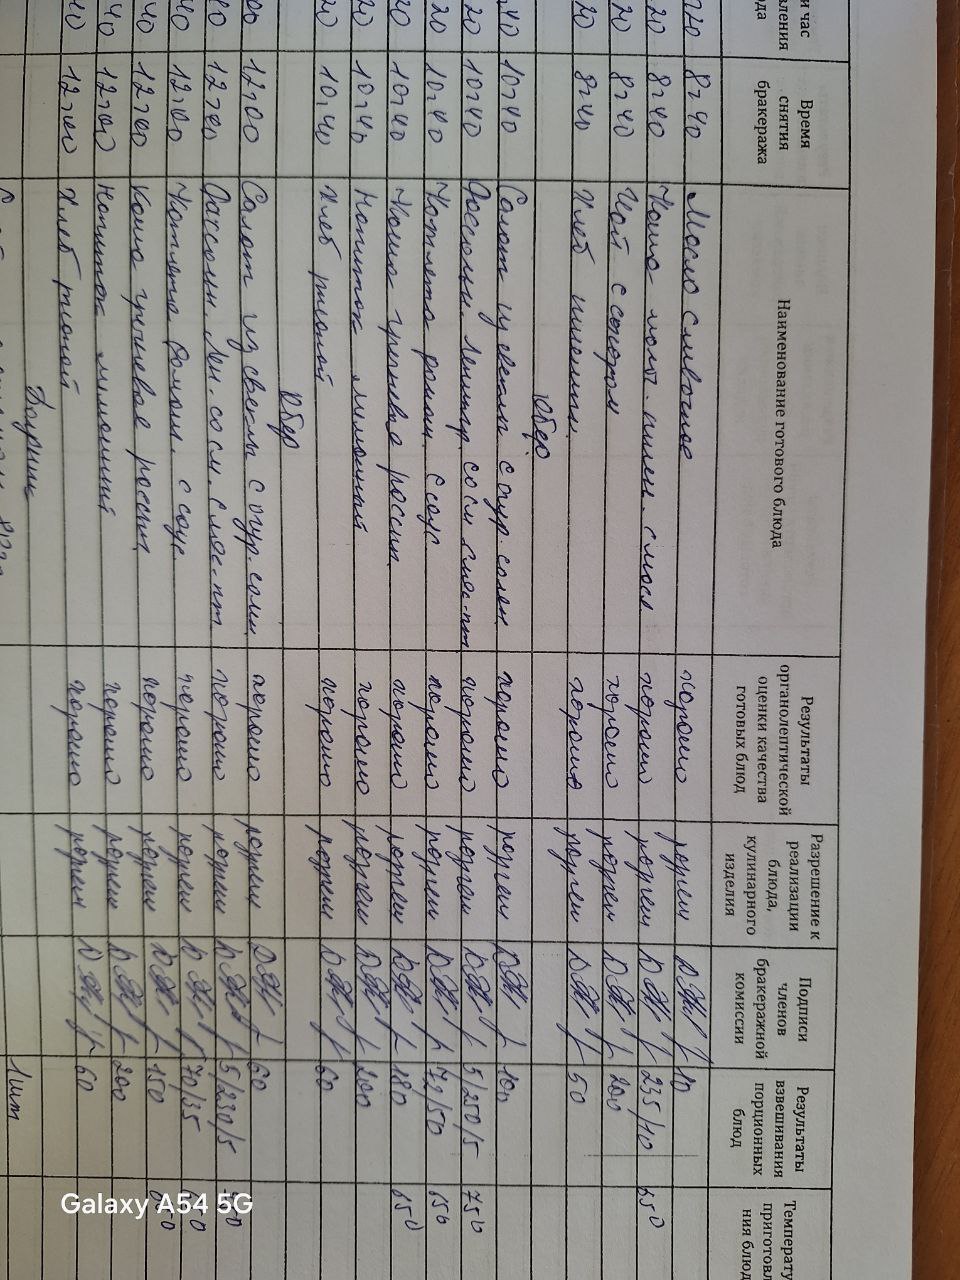 и час
вления
юда
Время
снятия
бракеража
Наименование готового блюда
Результаты
органолептической
оценки качества
готовых блюд
Разрешение к
реализации
блюда,
кулинарного
изделия
Подписи
членов
бракеражной
комиссии
Результаты
взвешивания
порционных
блюд
Температу
приготовл
ния блюд
20 8:40 Масло сливочное хорошо разреш 10
20 8:40 Каша мол. пшен. с масл хорошо разреш 235/10 65°
20 8:40 Чай с сахаром хорошо разреш 200
20 8:40 Хлеб пшенич. хорошо разреш 50
Обед
40 10:40 Салат из свеклы с огур. солен хорошо разреш 100
20 10:40 Рассольн. Ленингр. со см мяс-пт хорошо разреш 5/250/5 75°
20 10:40 Котлета домаш. с соус хорошо разреш 65°
20 10:40 Каша гречневая рассып. хорошо разреш 180 65°
20 10:40 Напиток лимонный хорошо разреш 200
20 10:40 Хлеб ржаной хорошо разреш 60
Обед
00 12:00 Салат из свеклы с огур. солен хорошо разреш 60
40 12:00 Рассольн. Лен. со см. с мяс-пт хорошо разреш 5/230/5
40 12:00 Котлета домаш. с соус хорошо разреш 70/35
40 12:00 Каша гречневая рассып хорошо разреш 150
40 12:00 Напиток лимонный хорошо разреш 200
40 12:00 Хлеб ржаной хорошо разреш 60
1 шт
Galaxy A54 5G